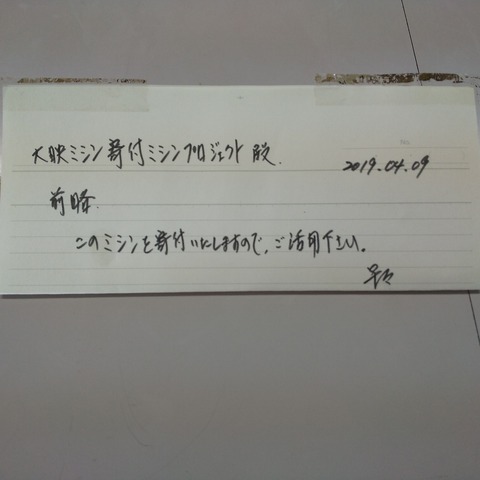 大映ミシン寄付ミシンプロジェクト 殿.
2019.04.09
前略.
このミシンを寄付いたしますので、ご活用下さい。
早々